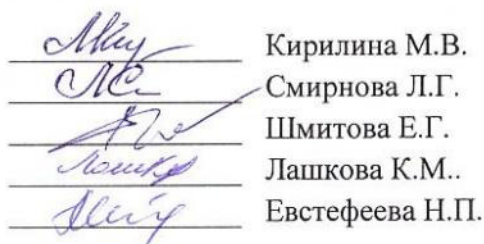 Кирилина М.В.
Смирнова Л.Г.
Шмитова Е.Г.
Лашкова К.М..
Евстефеева Н.П.